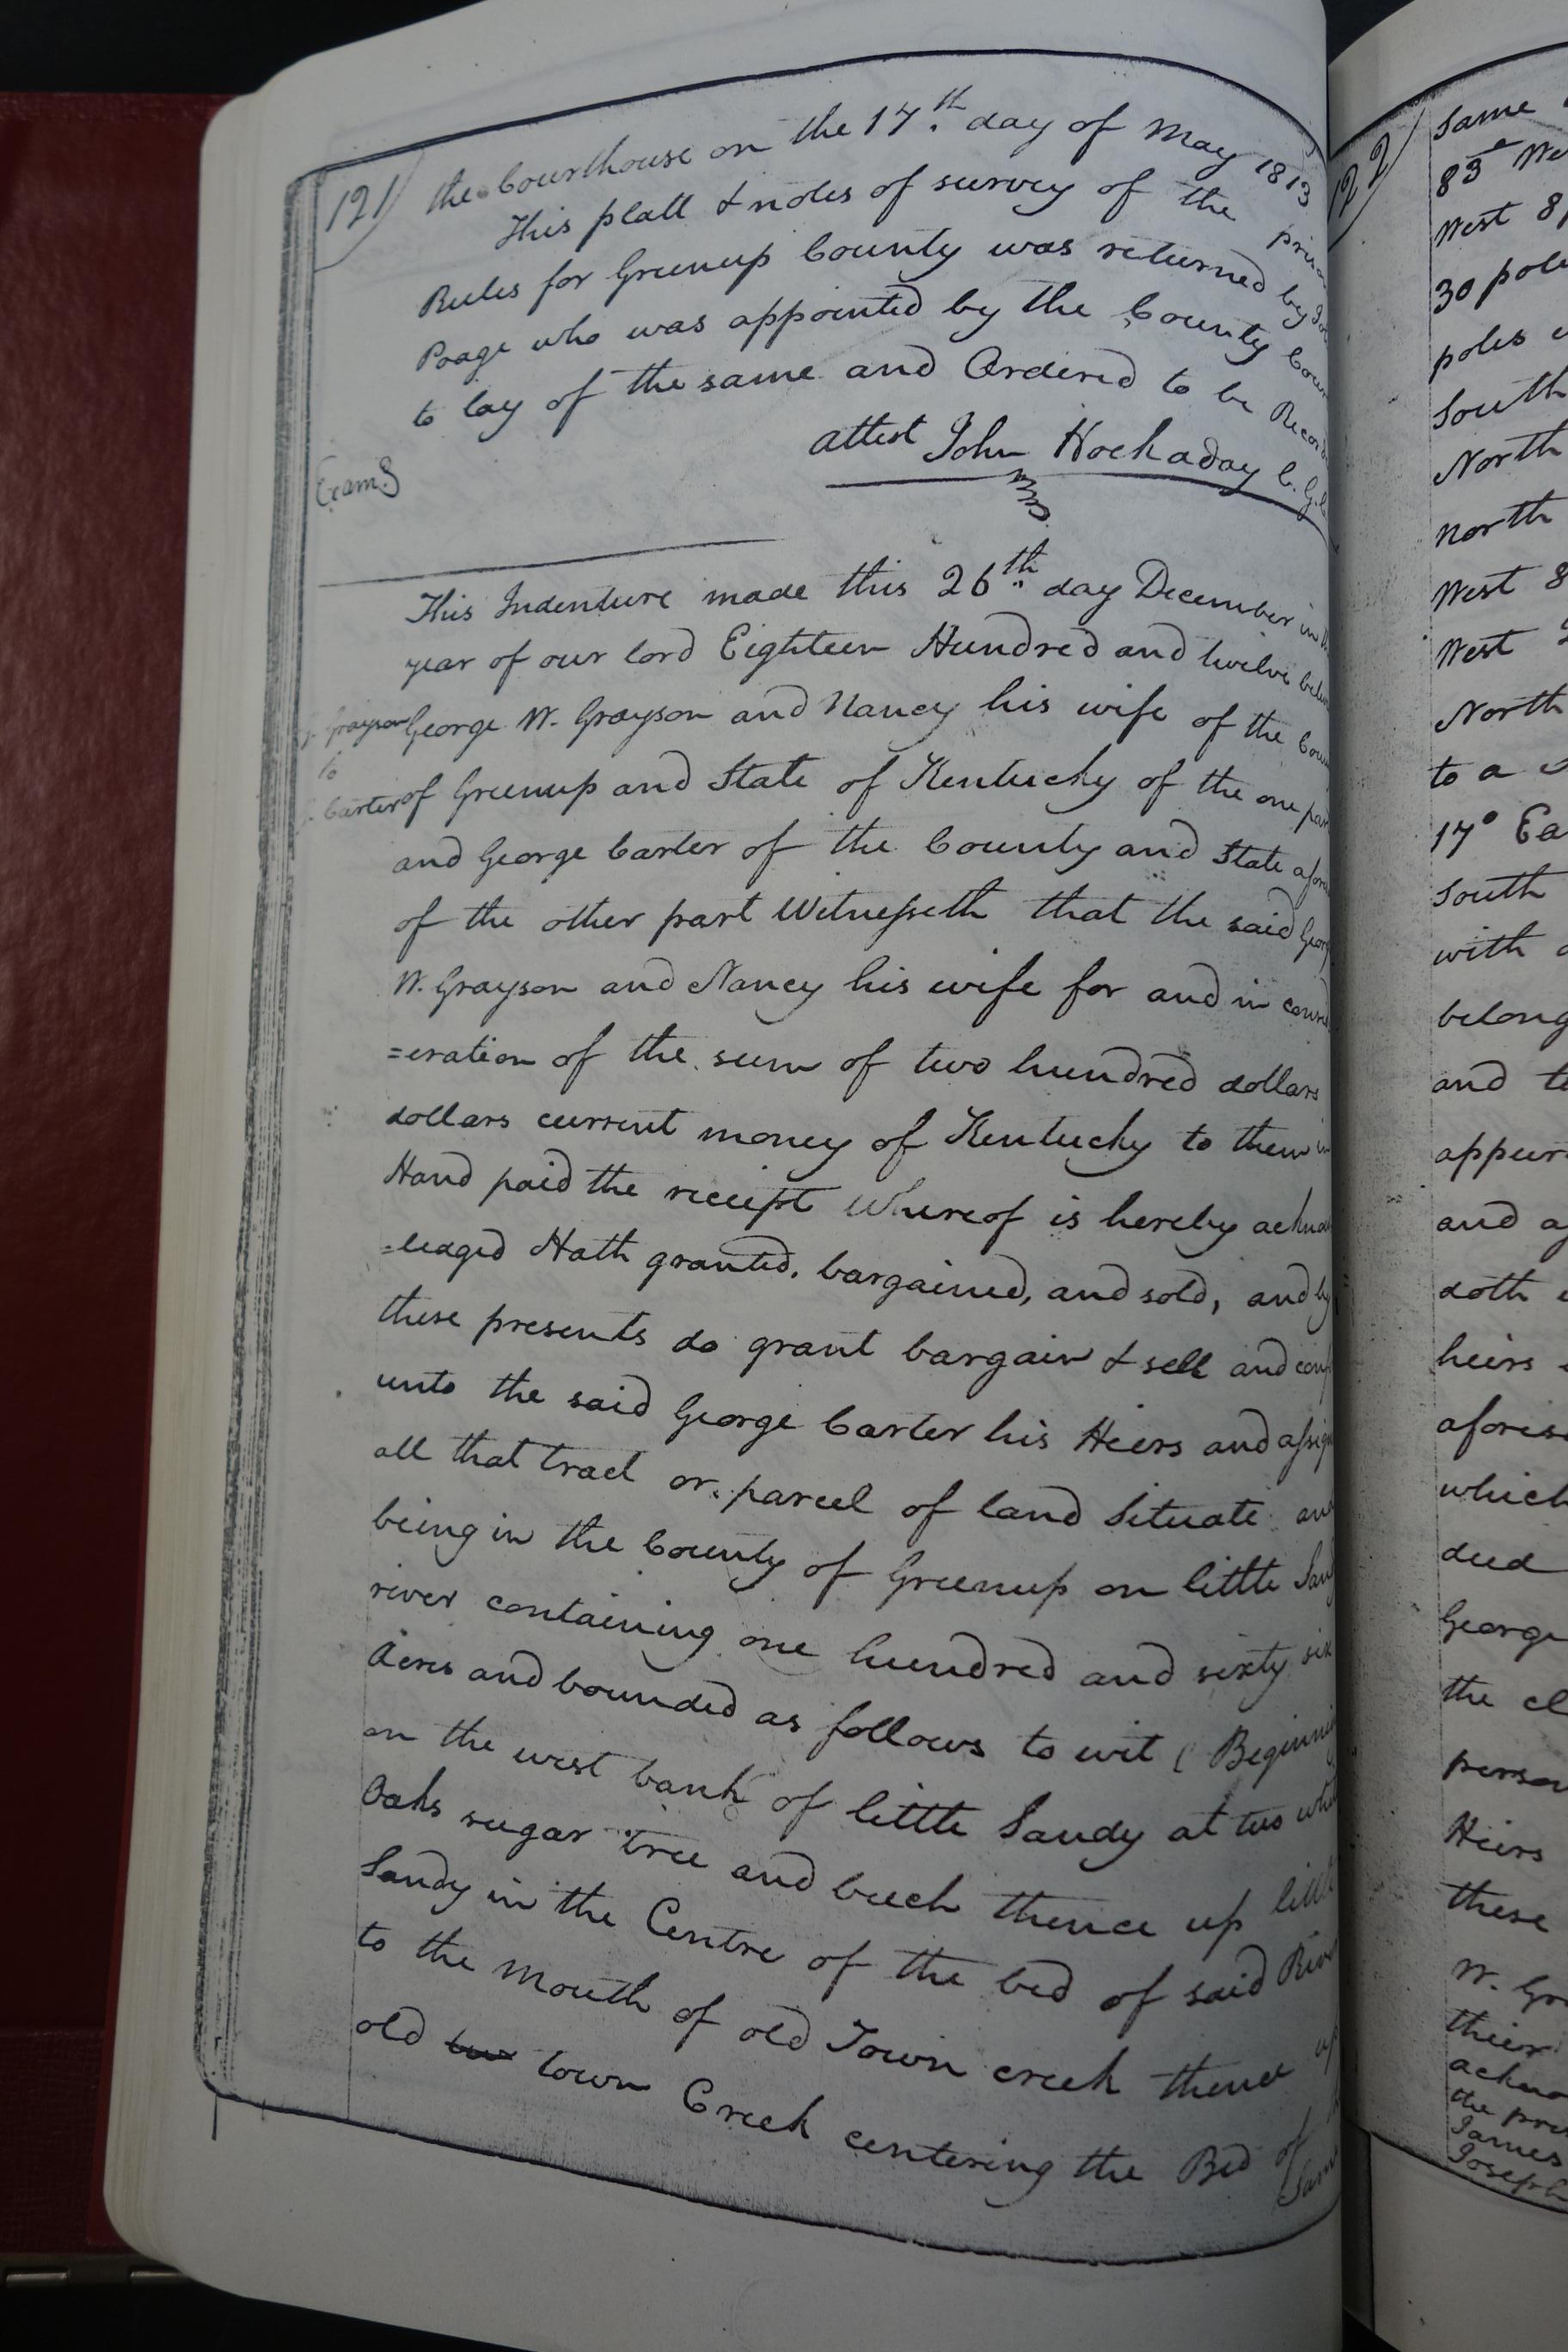 121
the Courthouse on the 17th day of May 1813
This platt & notes of survey of the prison
Rules for Greenup County was returned by
Poage who was appointed by the County Cour
to lay of the same and Ordered to be Record
attest John Hockaday C. G. C
Exam.d
This Indenture made this 26th day December in th
year of our lord Eighteen Hundred and twelve betw
Grayson
to
Carter
George W. Grayson and Nancy his wife of the Coun
of Greenup and State of Kentucky of the one par
and George Carter of the County and State afore
of the other part Witnesseth that the said Georg
W. Grayson and Nancy his wife for and in consid
=eration of the sum of two hundred dollars
dollars current money of Kentucky to them in
Hand paid the receipt Whereof is hereby acknow
=ledged Hath granted, bargained, and sold, and by
these presents do grant bargain & sell and conf
unto the said George Carter his Heirs and assign
all that tract or parcel of land Situate and
being in the County of Greenup on little Sand
river containing one hundred and sixty six
Acres and bounded as follows to wit ( Beginnin
on the west bank of little Sandy at two whit
Oaks sugar tree and beech thence up littl
Sandy in the Centre of the bed of said Riv
to the mouth of old Town creek thence up
old town Creek centering the Bed of
Same
122
Same
83° We
West 8
30 pole
poles
South
North
North
West 8
West
North
to a
17° Ea
South
with
belong
and t
appur
and a
doth
heirs
afores
which
deed
George
the cl
person
Heirs
these
W. Gr
their
ackno
the pre
James
Joseph